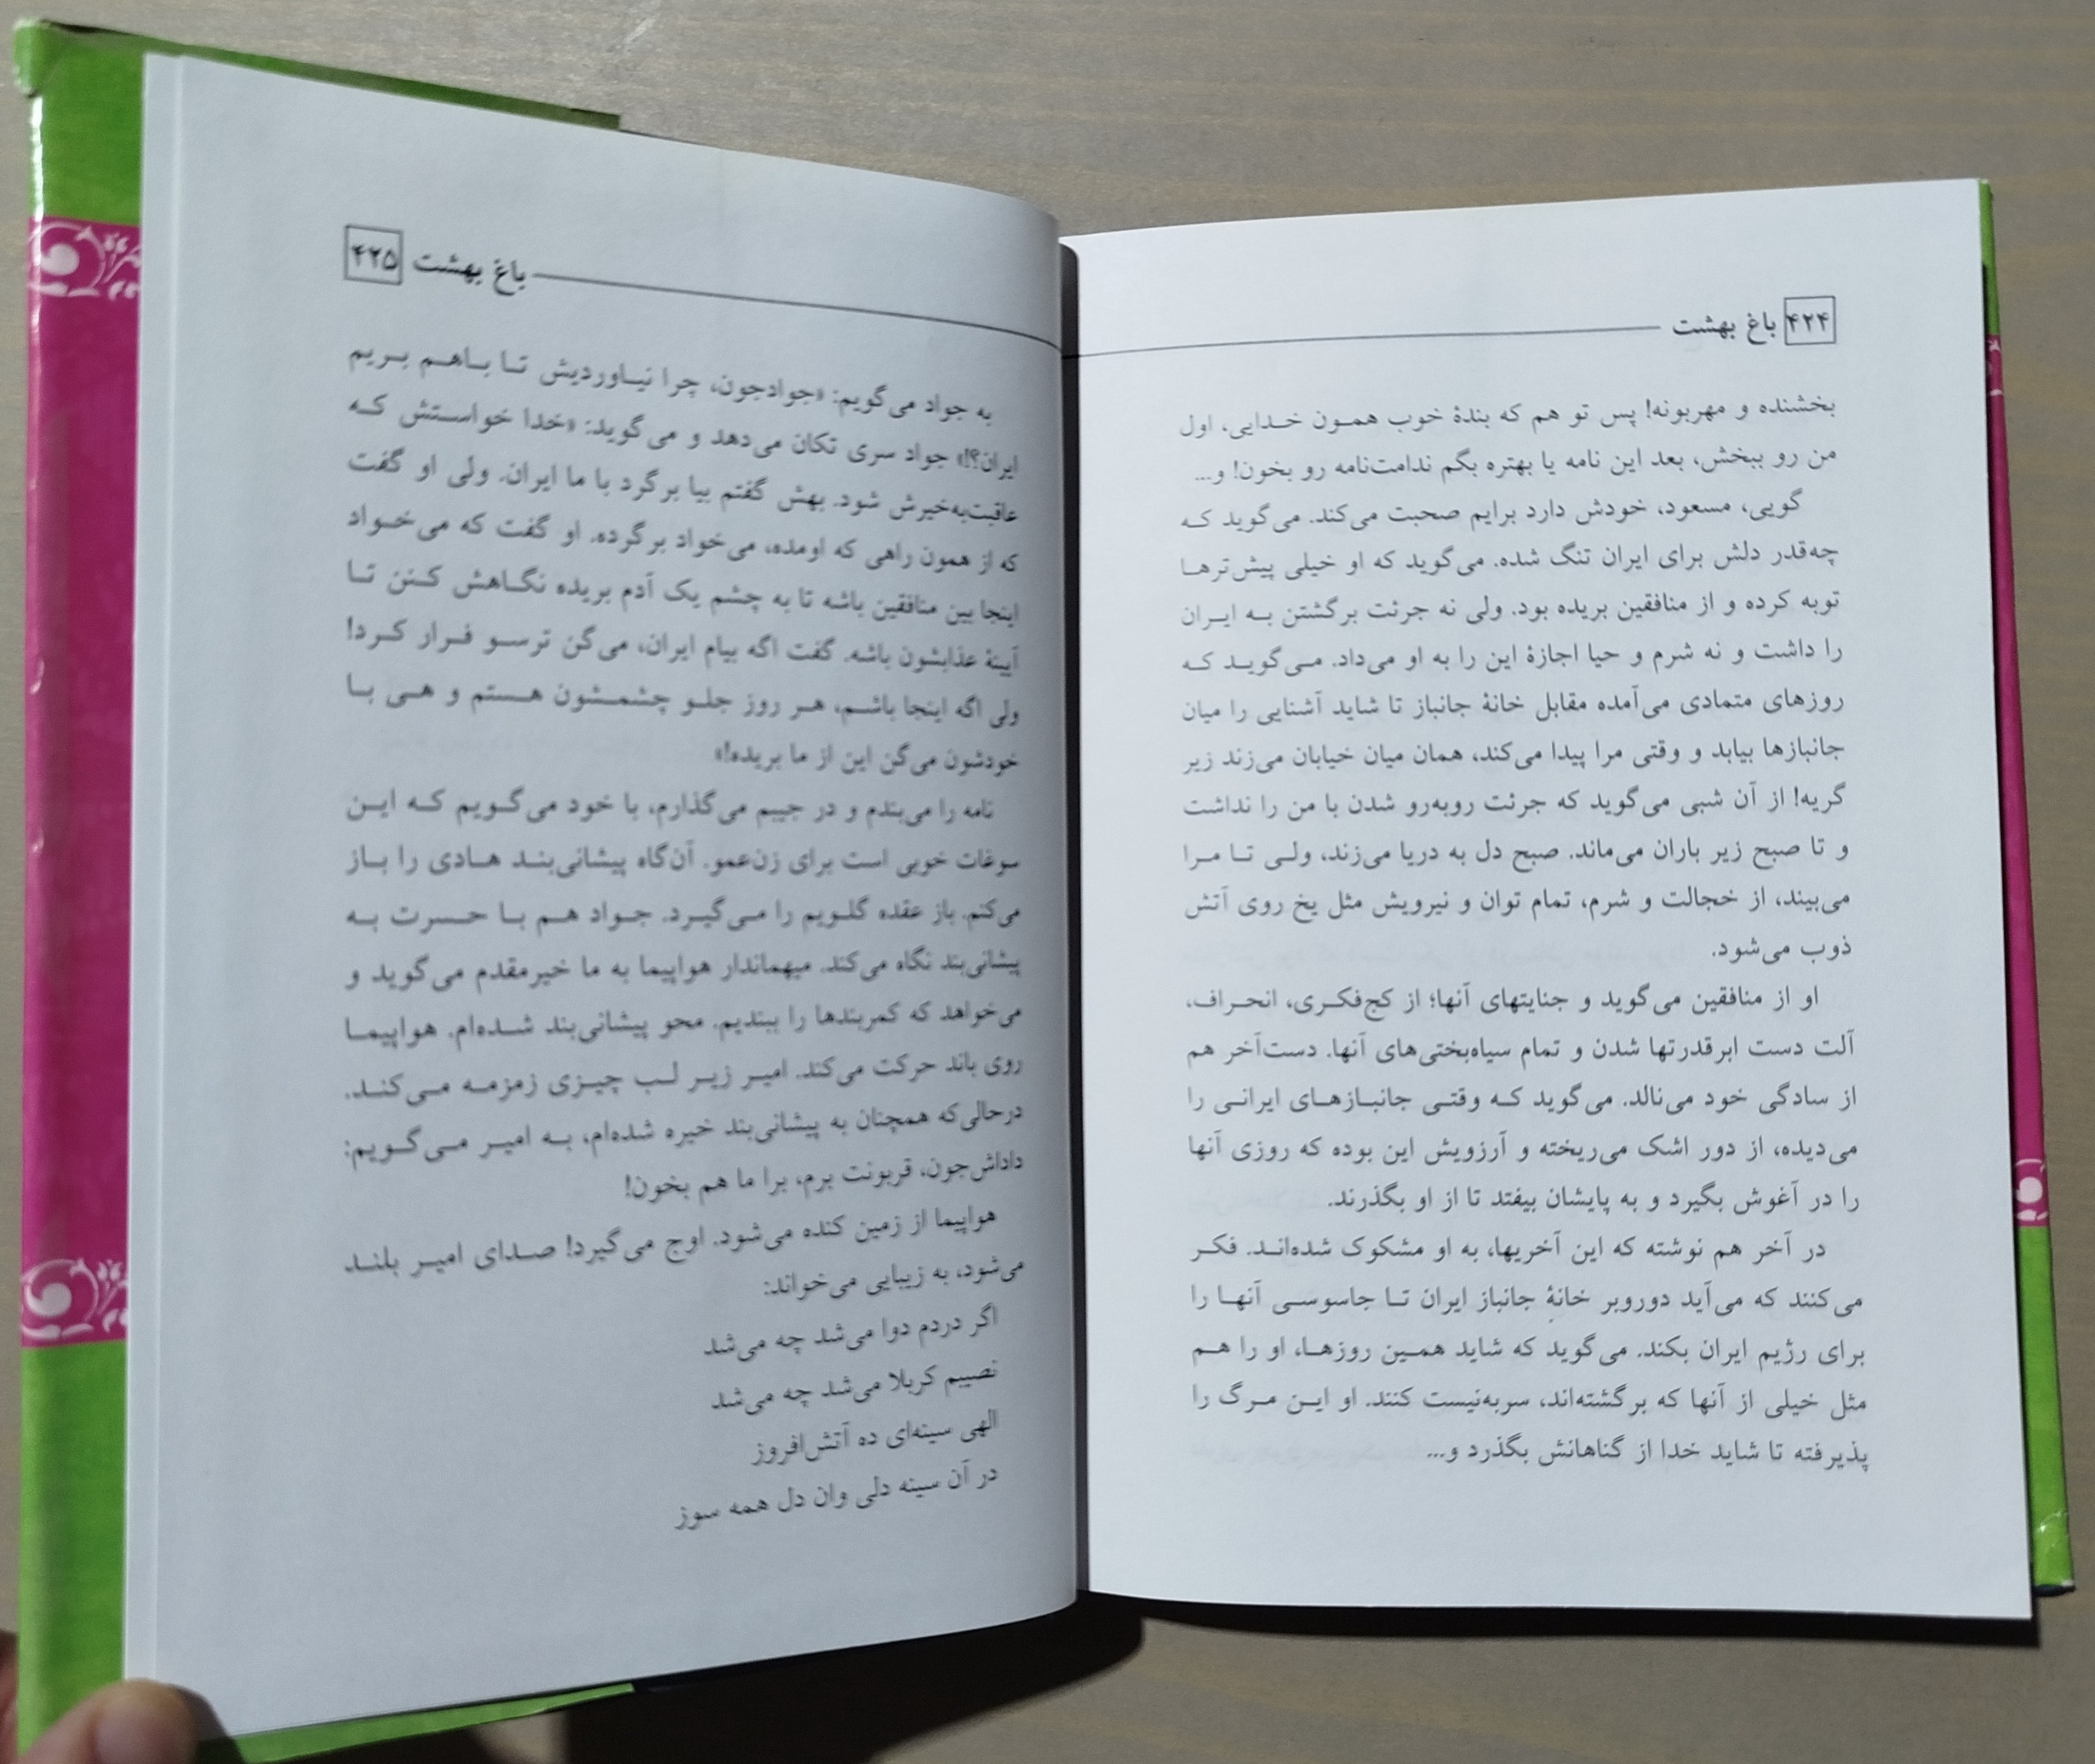 ۴۲۴ باغ بهشت
بخشنده و مهربونه! پس تو هم که بندهٔ خوب همون خدایی، اول
من رو ببخش، بعد این نامه یا بهتره بگم ندامت‌نامه رو بخون! و...
گویی، مسعود، خودش دارد برایم صحبت می‌کند. می‌گوید که
چه‌قدر دلش برای ایران تنگ شده. می‌گوید که او خیلی پیش‌ترها
توبه کرده و از منافقین بریده بود. ولی نه جرئت برگشتن به ایران
را داشت و نه شرم و حیا اجازهٔ این را به او می‌داد. می‌گوید که
روزهای متمادی می‌آمده مقابل خانهٔ جانباز تا شاید آشنایی را میان
جانبازها بیابد و وقتی مرا پیدا می‌کند، همان میان خیابان می‌زند زیر
گریه! از آن شبی می‌گوید که جرئت روبه‌رو شدن با من را نداشت
و تا صبح زیر باران می‌ماند. صبح دل به دریا می‌زند، ولی تا مرا
می‌بیند، از خجالت و شرم، تمام توان و نیرویش مثل یخ روی آتش
ذوب می‌شود.
او از منافقین می‌گوید و جنایتهای آنها؛ از کج‌فکری، انحراف،
آلت دست ابرقدرتها شدن و تمام سیاه‌بختی‌های آنها. دست‌آخر هم
از سادگی خود می‌نالد. می‌گوید که وقتی جانبازهای ایرانی را
می‌دیده، از دور اشک می‌ریخته و آرزویش این بوده که روزی آنها
را در آغوش بگیرد و به پایشان بیفتد تا از او بگذرند.
در آخر هم نوشته که این آخریها، به او مشکوک شده‌اند. فکر
می‌کنند که می‌آید دوروبر خانهٔ جانباز ایران تا جاسوسی آنها را
برای رژیم ایران بکند. می‌گوید که شاید همین روزها، او را هم
مثل خیلی از آنها که برگشته‌اند، سربه‌نیست کنند. او این مرگ را
پذیرفته تا شاید خدا از گناهانش بگذرد و...
باغ بهشت ۴۲۵
به جواد می‌گویم: «جوادجون، چرا نیاوردیش تا باهم بریم
ایران؟!» جواد سری تکان می‌دهد و می‌گوید: «خدا خواستش که
عاقبت‌به‌خیرش شود. بهش گفتم بیا برگرد با ما ایران. ولی او گفت
که از همون راهی که اومده، می‌خواد برگرده. او گفت که می‌خواد
اینجا بین منافقین باشه تا به چشم یک آدم بریده نگاهش کنن تا
آیینهٔ عذابشون باشه. گفت اگه بیام ایران، می‌گن ترسو فرار کرد!
ولی اگه اینجا باشم، هر روز جلو چشمشون هستم و هی با
خودشون می‌گن این از ما بریده!»
نامه را می‌بندم و در جیبم می‌گذارم، با خود می‌گویم که این
سوغات خوبی است برای زن‌عمو. آن‌گاه پیشانی‌بند هادی را باز
می‌کنم. باز عقده گلویم را می‌گیرد. جواد هم با حسرت به
پیشانی‌بند نگاه می‌کند. میهماندار هواپیما به ما خیرمقدم می‌گوید و
می‌خواهد که کمربندها را ببندیم. محو پیشانی‌بند شده‌ام. هواپیما
روی باند حرکت می‌کند. امیر زیر لب چیزی زمزمه می‌کند.
درحالی‌که همچنان به پیشانی‌بند خیره شده‌ام، به امیر می‌گویم:
داداش‌جون، قربونت برم، برا ما هم بخون!
هواپیما از زمین کنده می‌شود. اوج می‌گیرد! صدای امیر بلند
می‌شود، به زیبایی می‌خواند:
اگر دردم دوا می‌شد چه می‌شد
نصیبم کربلا می‌شد چه می‌شد
الهی سینه‌ای ده آتش‌افروز
در آن سینه دلی وان دل همه سوز